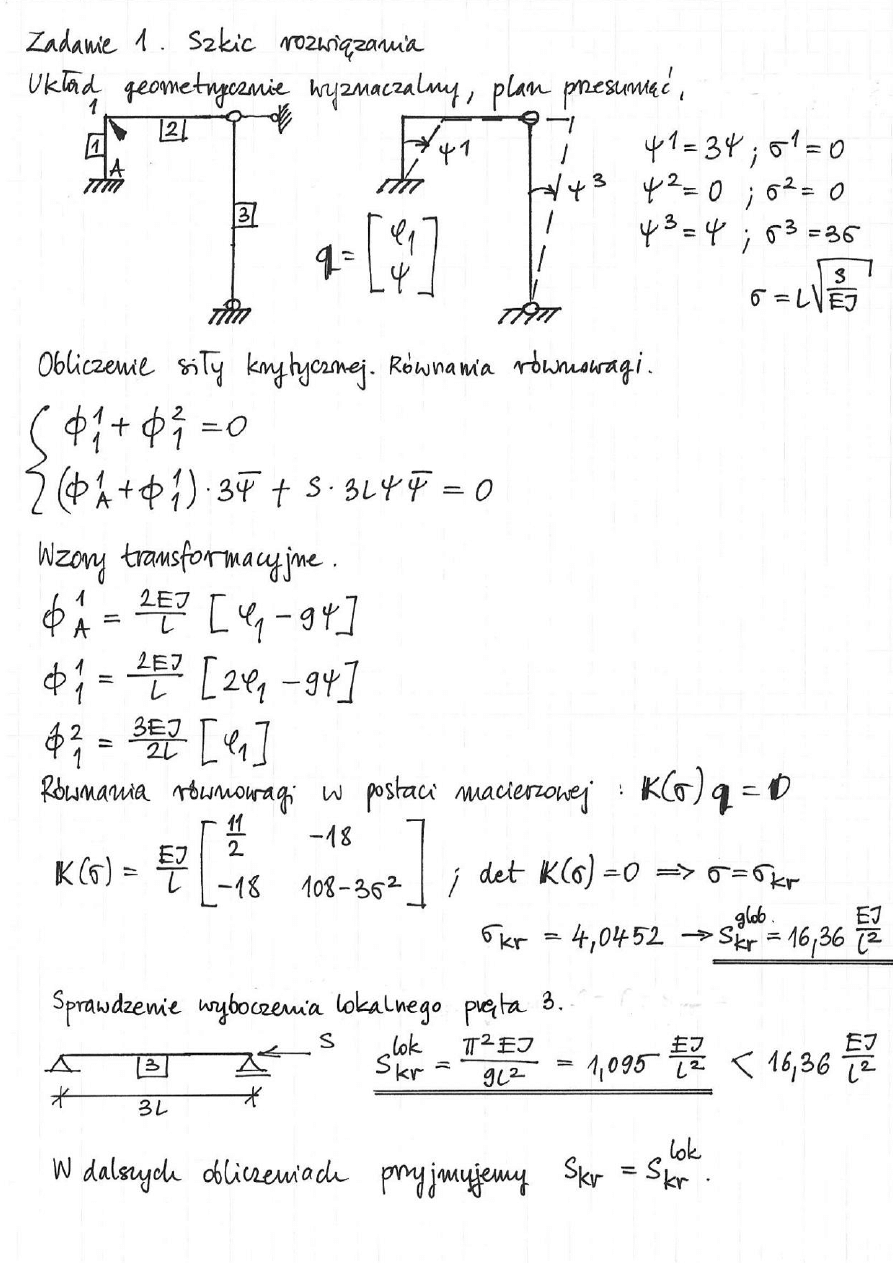 Zadanie 1. Szkic rozwiązania
Układ geometrycznie wyznaczalny, plan przesunięć,
1
2
1
A
3
ψ1
ψ3
q = [φ₁ ψ]
ψ¹ = 3ψ ; σ¹ = 0
ψ² = 0 ; σ² = 0
ψ³ = ψ ; σ³ = 3σ
σ = L√(S/EJ)
Obliczenie siły krytycznej. Równania równowagi.
{ ϕ¹₁ + ϕ²₁ = 0
(ϕ¹_A + ϕ¹₁)·3ψ̅ + S·3Lψψ̅ = 0
Wzory transformacyjne.
ϕ¹_A = 2EJ/L [φ₁ - 9ψ]
ϕ¹₁ = 2EJ/L [2φ₁ - 9ψ]
ϕ²₁ = 3EJ/2L [φ₁]
Równania równowagi w postaci macierzowej : K(σ) q = 0
K(σ) = EJ/L [11/2 -18
-18 108-3σ²] ; det K(σ) = 0 ⟹ σ = σkr
σkr = 4,0452 → Skr^glob. = 16,36 EJ/L²
Sprawdzenie wyboczenia lokalnego pręta 3.
3
S
3L
Skr^lok = π²EJ/9L² = 1,095 EJ/L² < 16,36 EJ/L²
W dalszych obliczeniach przyjmujemy Skr = Skr^lok.